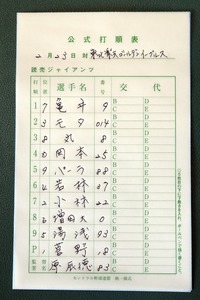 公式打順表
2月23日 対 東北楽天ゴールデンイーグルス
読売ジャイアンツ
打順 位置 選手名 背番 交代
1 7 亀井 9 B C D E
2 3 モタ 014 B C D E
3 8 丸 8 B C D E
4 D 岡本 25 B C D E
5 9 パーラ 88 B C D E
6 4 若林 37 B C D E
7 2 小林 22 B C D E
8 6 増田大 0 B C D E
9 5 湯浅 93 B C D E
P 1 菅野 18 B C D E
監督 原辰徳 83
セントラル野球連盟